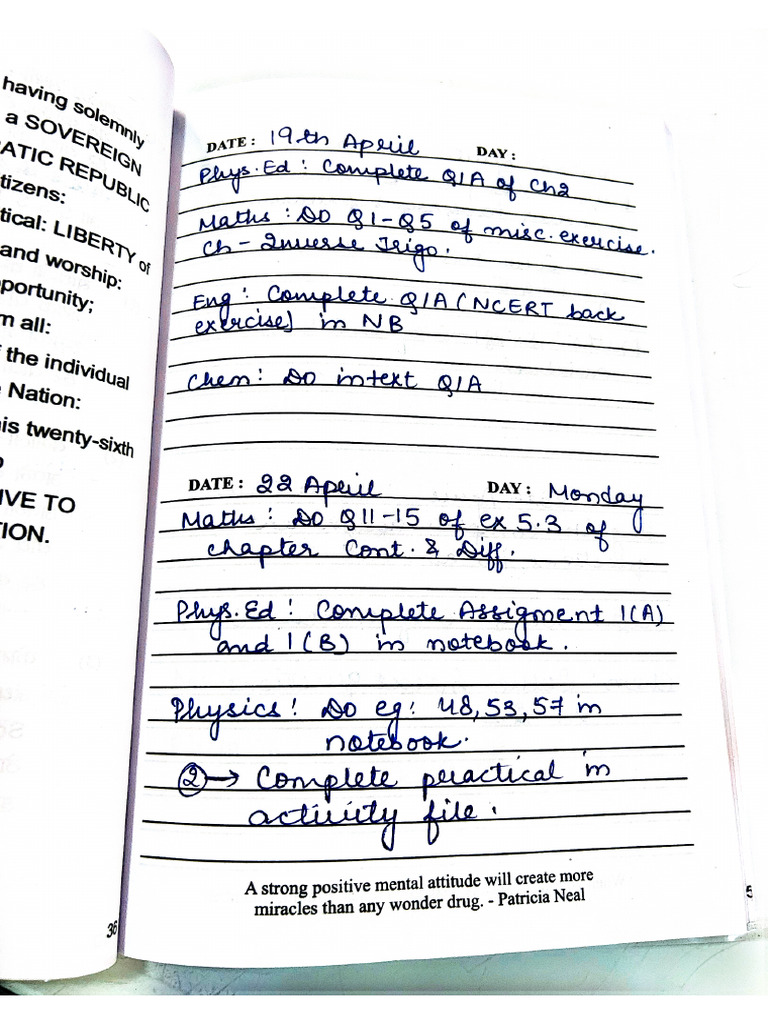 having solemnly
a SOVEREIGN
ATIC REPUBLIC
tizens:
tical: LIBERTY of
and worship:
portunity;
m all:
f the individual
Nation:
is twenty-sixth
IVE TO
ION.
36
DATE: 19th April DAY:
Phys.Ed: Complete Q1A of Ch2
Maths: Do Q1-Q5 of misc. exercise.
Ch - Inverse Trigo.
Eng: Complete Q1A (NCERT back
exercise) in NB
Chem: Do intext Q1A
DATE: 22 April DAY: Monday
Maths: Do Q11-15 of ex 5.3 of
chapter Cont. & Diff.
Phys.Ed: Complete Assigment 1(A)
and 1(B) in notebook.
Physics: Do eg: 48, 53, 57 in
notebook.
② → Complete practical in
activity file.
A strong positive mental attitude will create more
miracles than any wonder drug. - Patricia Neal
5